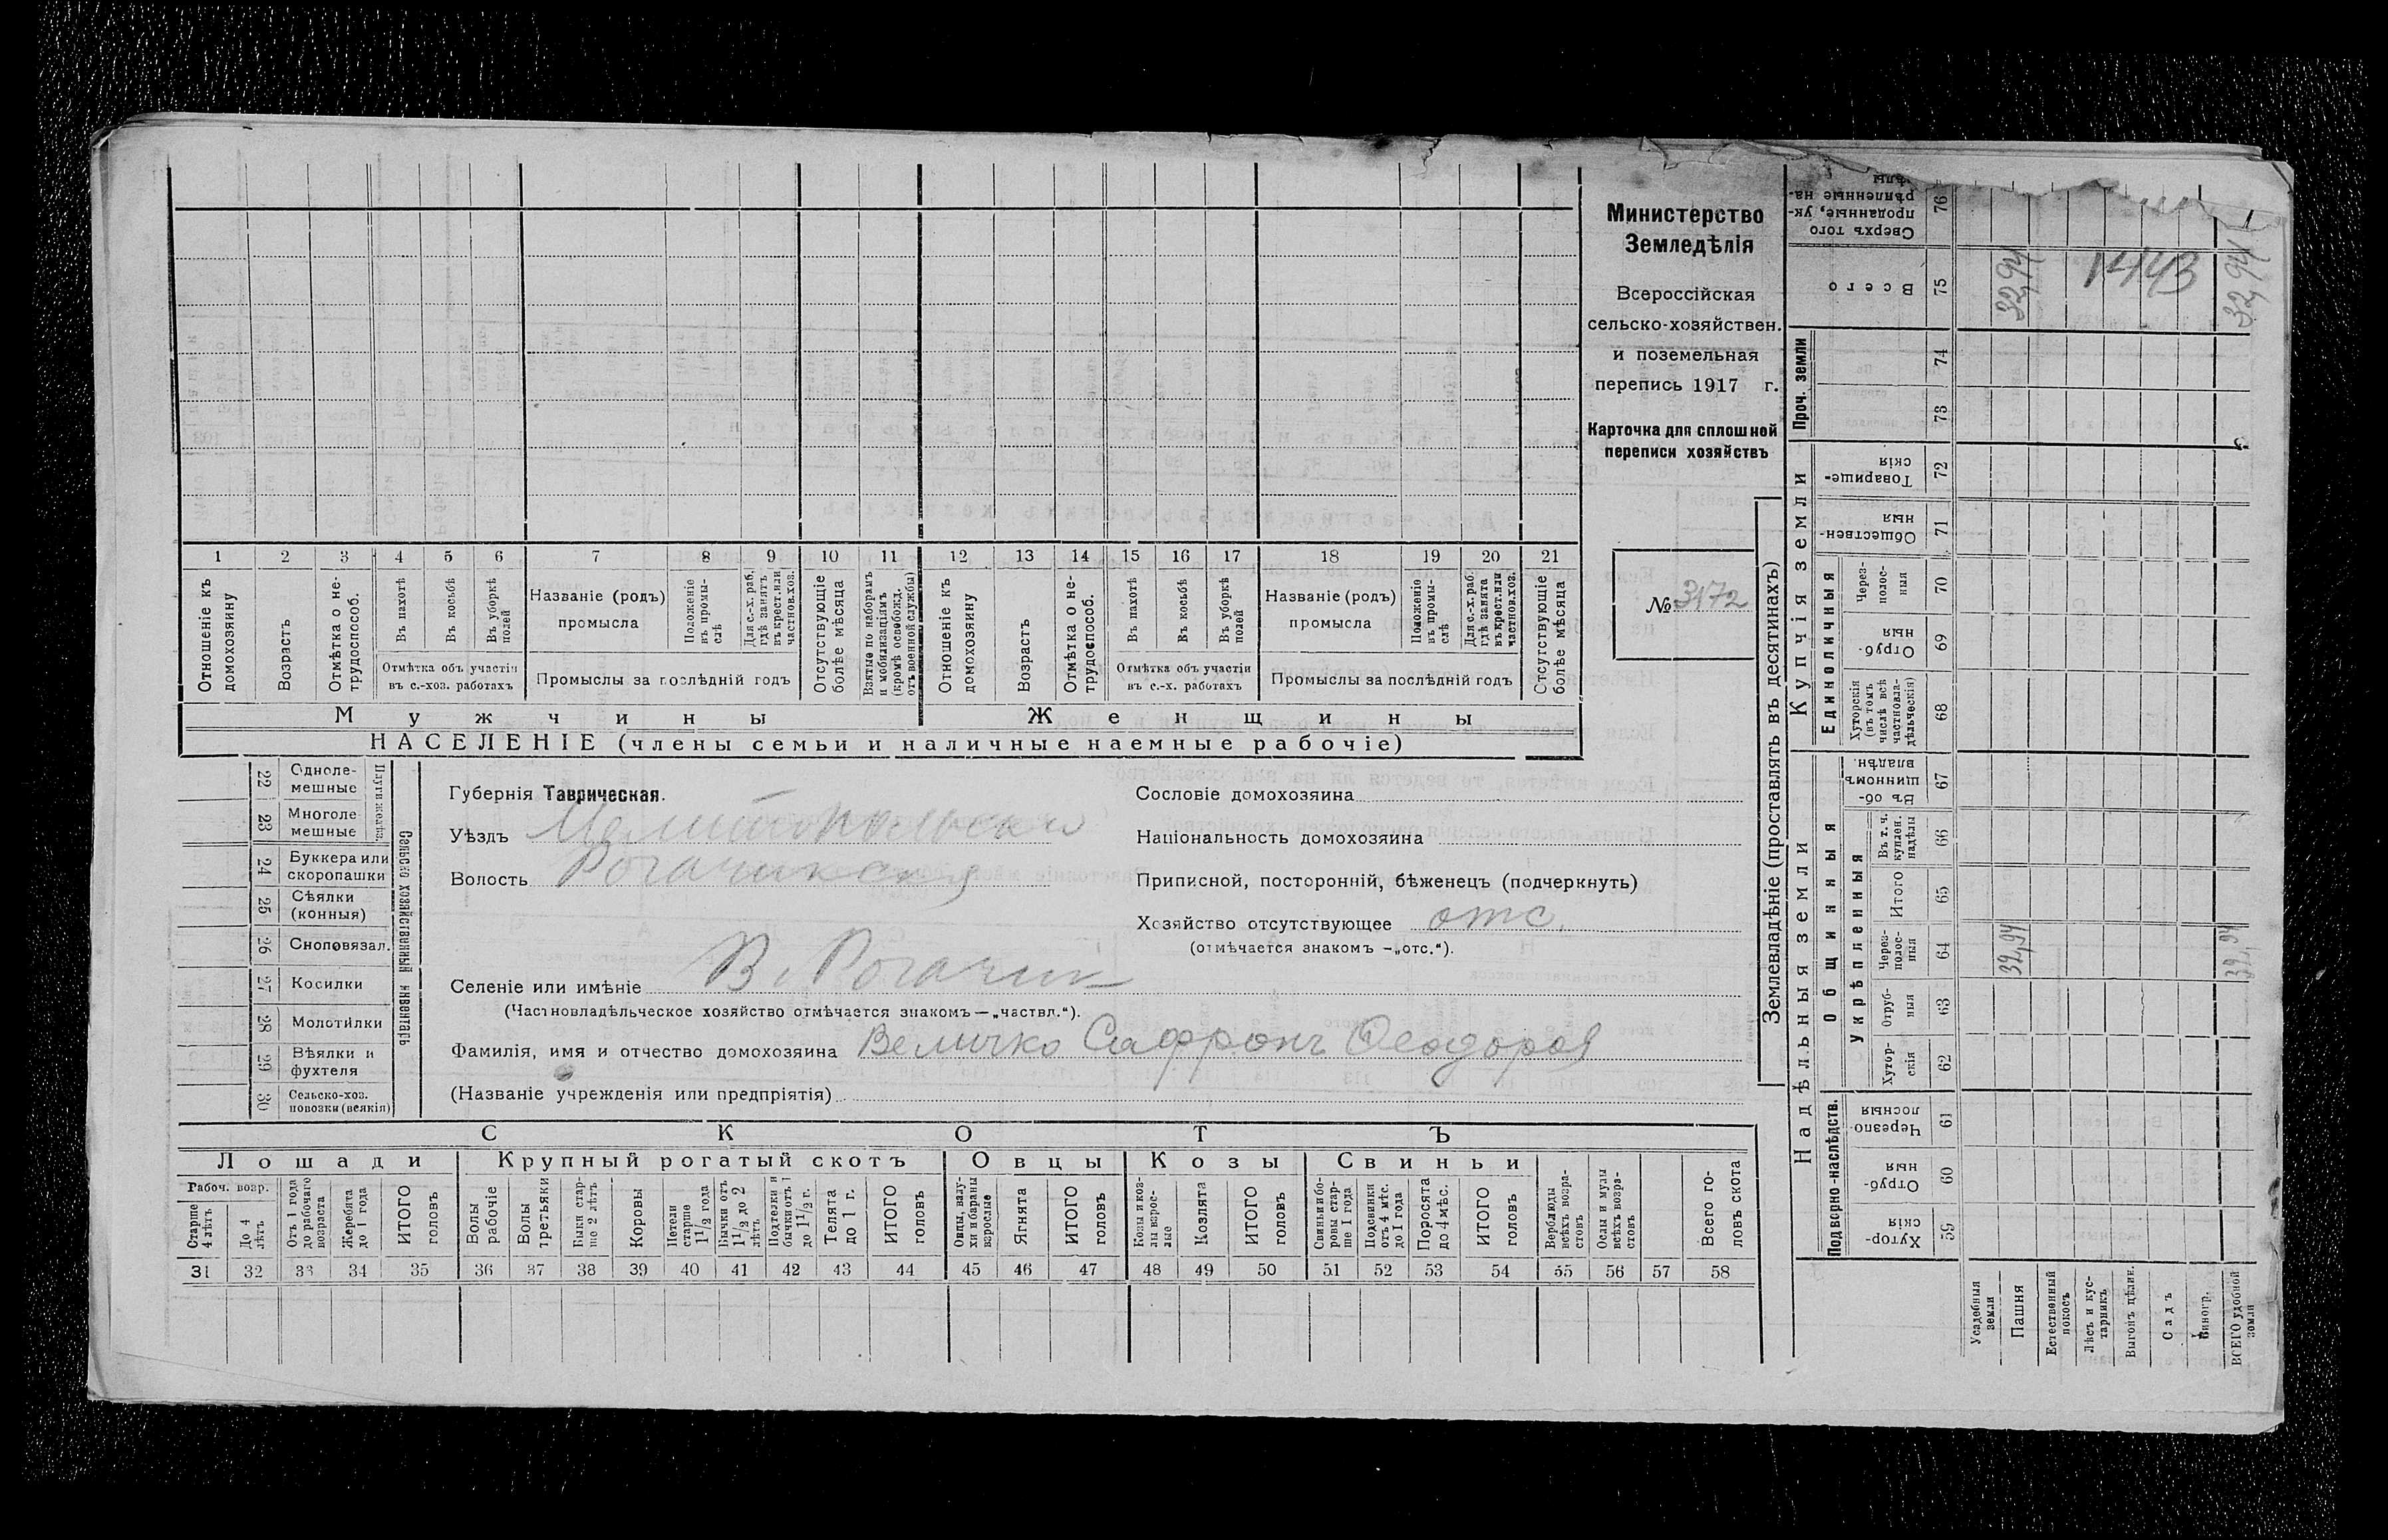 Министерство
Земледѣлія
Всероссійская
сельско-хозяйствен.
и поземельная
перепись 1917 г.
Карточка для сплошной
переписи хозяйствъ
№ 3172
1 2 3 4 5 6 7 8 9 10 11 12 13 14 15 16 17 18 19 20 21
Отношеніе къ домохозяину
Возрастъ
Отмѣтка о не-трудоспособ.
Въ пахотѣ
Въ косьбѣ
Въ уборкѣ полей
Отмѣтка объ участіи
въ с.-хоз. работахъ
Названіе (родъ)
промысла
Положеніе въ промы-слѣ
Для с.-х. раб. гдѣ занятъ въ крест. или частнов. хоз.
Промыслы за послѣдній годъ
Отсутствующіе болѣе мѣсяца
Взятые по наборамъ и мобилизаціямъ (кромѣ освобожд. отъ военной службы)
Отношеніе къ домохозяину
Возрастъ
Отмѣтка о не-трудоспособ.
Въ пахотѣ
Въ косьбѣ
Въ уборкѣ полей
Отмѣтка объ участіи
въ с.-х. работахъ
Названіе (родъ)
промысла
Положеніе въ промы-слѣ
Для с.-х. раб. гдѣ занята въ крест. или частнов. хоз.
Промыслы за послѣдній годъ
Отсутствующіе болѣе мѣсяца
Мужчины
Женщины
НАСЕЛЕНІЕ (члены семьи и наличные наемные рабочіе)
Сельско хозяйственный инвентарь
Плуги желѣз.
22 Однолемешные
23 Многолемешные
24 Буккера или скоропашки
25 Сѣялки (конныя)
26 Сноповязал.
27 Косилки
28 Молотилки
29 Вѣялки и фухтеля
30 Сельско-хоз. повозки (всякія)
Губернія Таврическая.
Уѣздъ Мелитопольскій
Волость Рогачикская
Селеніе или имѣніе В. Рогачик
(Частновладѣльческое хозяйство отмѣчается знакомъ — „частвл.“).
Фамилія, имя и отчество домохозяина Величко Сафронъ Ѳеодоров
(Названіе учрежденія или предпріятія)
Сословіе домохозяина
Національность домохозяина
Приписной, посторонній, бѣженецъ (подчеркнуть)
Хозяйство отсутствующее отс.
(отмѣчается знакомъ —„отс.“).
СКОТЪ
Лошади
Крупный рогатый скотъ
Овцы
Козы
Свиньи
Рабоч. возр.
Старше 4 лѣтъ
До 4 лѣтъ
Отъ 1 года до рабочаго возраста
Жеребята до 1 года
ИТОГО головъ
Волы рабочіе
Волы третьяки
Быки стар-ше 2 лѣтъ
Коровы
Нетели старше 1½ года
Бычки отъ 1½ до 2 лѣтъ
Подтелки и бычки отъ 1 до 1½ г.
Телята до 1 г.
ИТОГО головъ
Овцы, валу-хи и бараны взрослые
Ягнята
ИТОГО головъ
Козы и коз-лы взрос-лые
Козлята
ИТОГО головъ
Свиньи и бо-ровы стар-ше 1 года
Подсвинки отъ 4 мѣс. до 1 года
Поросята до 4 мѣс.
ИТОГО головъ
Верблюды всѣхъ возра-стовъ
Ослы и мулы всѣхъ возра-стовъ
Всего го-ловъ скота
31 32 33 34 35 36 37 38 39 40 41 42 43 44 45 46 47 48 49 50 51 52 53 54 55 56 57 58
Землевладѣніе (проставлять въ десятинахъ)
Надѣльныя земли
Подворно-наслѣдств.
Хутор-скія 59
Отруб-ныя 60
Черезпо-лосныя 61
Общинныя
Укрѣпленныя
Хутор-скія 62
Отруб-ныя 63
Через-полос-ныя 64
Итого 65
Въ т. ч. куплен. надѣлы 66
Въ об-щинномъ владѣн. 67
Купчія земли
Единоличныя
Хуторскія (въ томъ числѣ всѣ частновла-дѣльческія) 68
Отруб-ныя 69
Через-полос-ныя 70
Обществен-ныя 71
Товарище-скія 72
Проч. земли
73
74
Всего 75
Сверхъ того проданные, ук-рѣпленные на-дѣлы 76
Усадебныя земли
Пашня 32,94 32,94
Естественный покосъ
Лѣсъ и кус-тарникъ
Выгонъ цѣлин.
Садъ
Виногр.
ВСЕГО удобной земли 32,94 32,94
1443